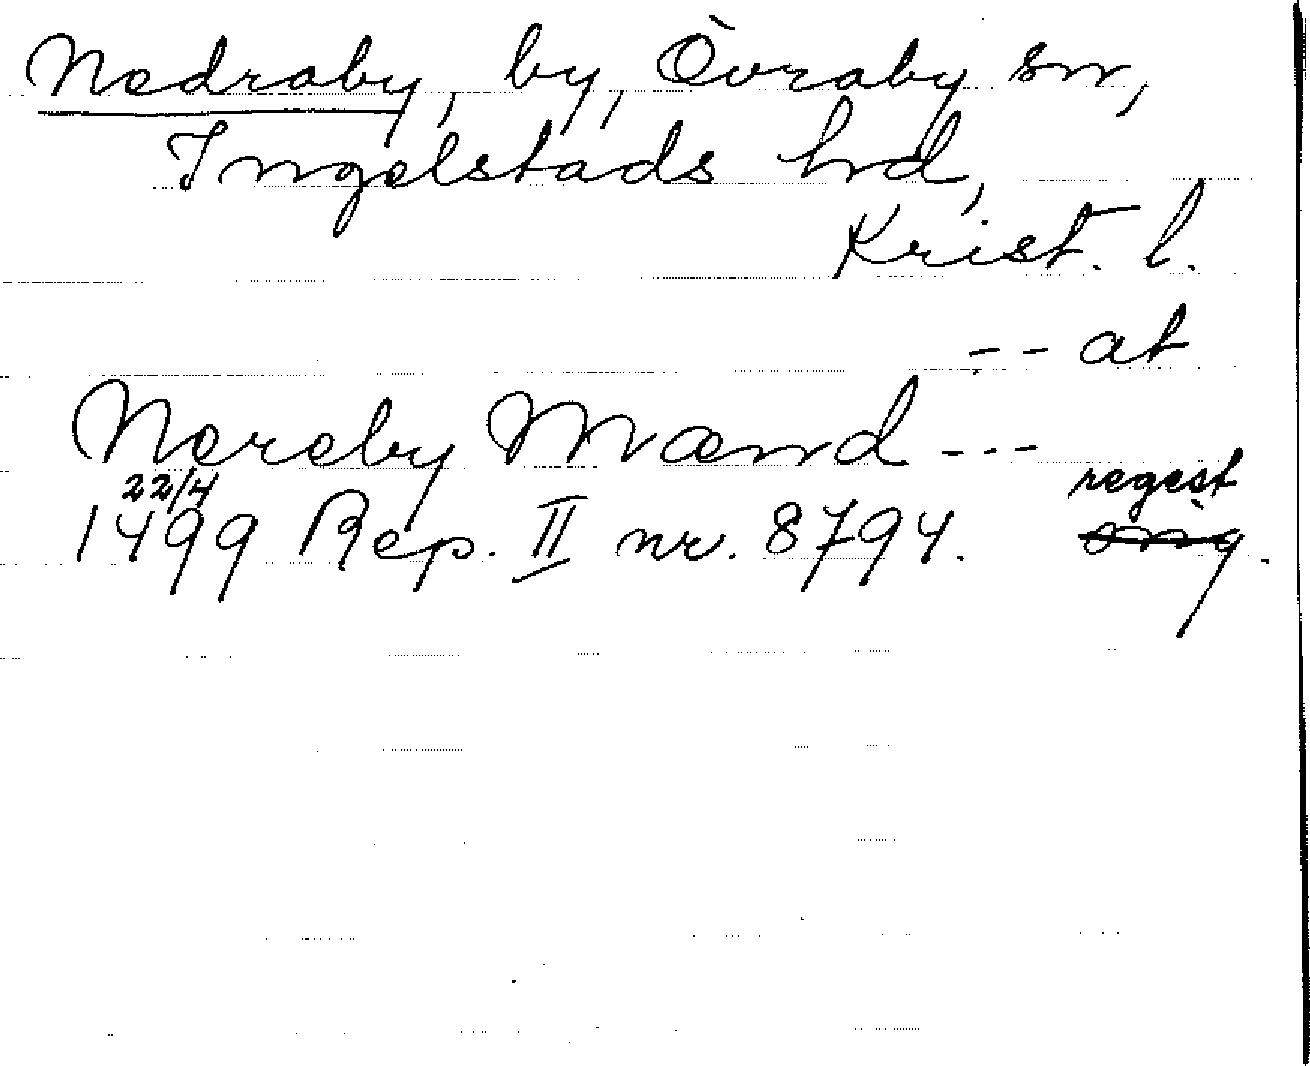 Nedraby, by, Övraby sn,
Ingelstads hd,
Krist. l.
-- at
Nereby Mænd ---
22/4 regest
1499 Rep. II nr. 8794. orig.